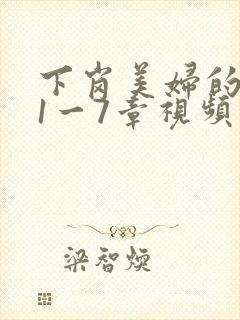 下岗美婦的
1一7章視頻
梁智煐